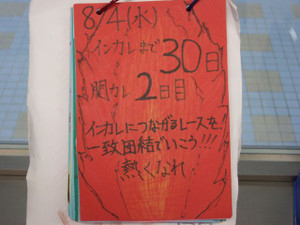 8/4(水)
インカレまで30日
関カレ2日目
インカレにつながるレースを、
一致団結でいこう!!!
熱くなれ